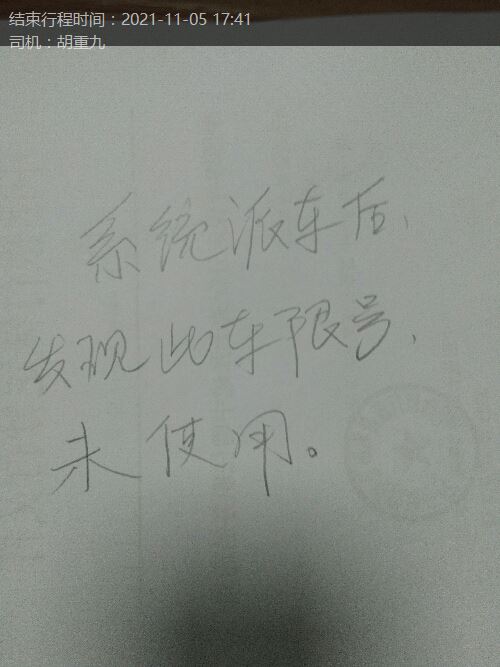 结束行程时间：2021-11-05 17:41
司机：胡重九
系统派车后、
发现此车限号、
未使用。